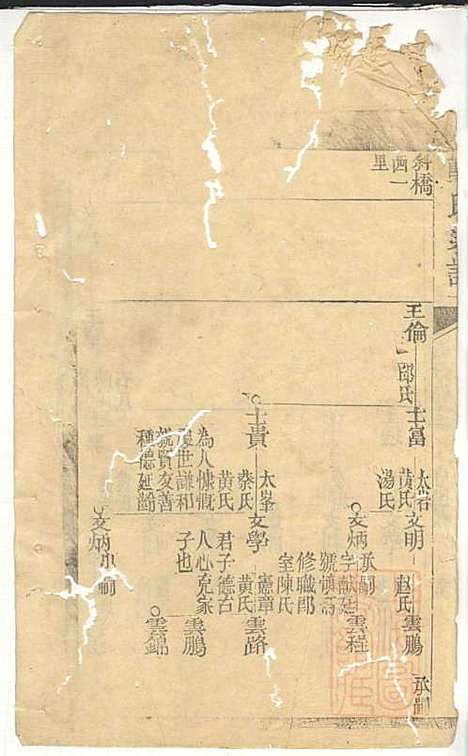 氏
斜橋
西一
里
王倫
邱氏
士富
太岩
黃氏
湯氏
文明
趙氏
雲鵬
承嗣
文炳
承嗣
修職郎
室陳氏
雲程
士貴
太峯
蔡氏
黃氏
為人慷慨
處世謙和
親賢友善
種德延齡
文學
憲章
黃氏
君子德百
人心克家
子也
雲路
雲鵬
雲錦
文炳
出嗣